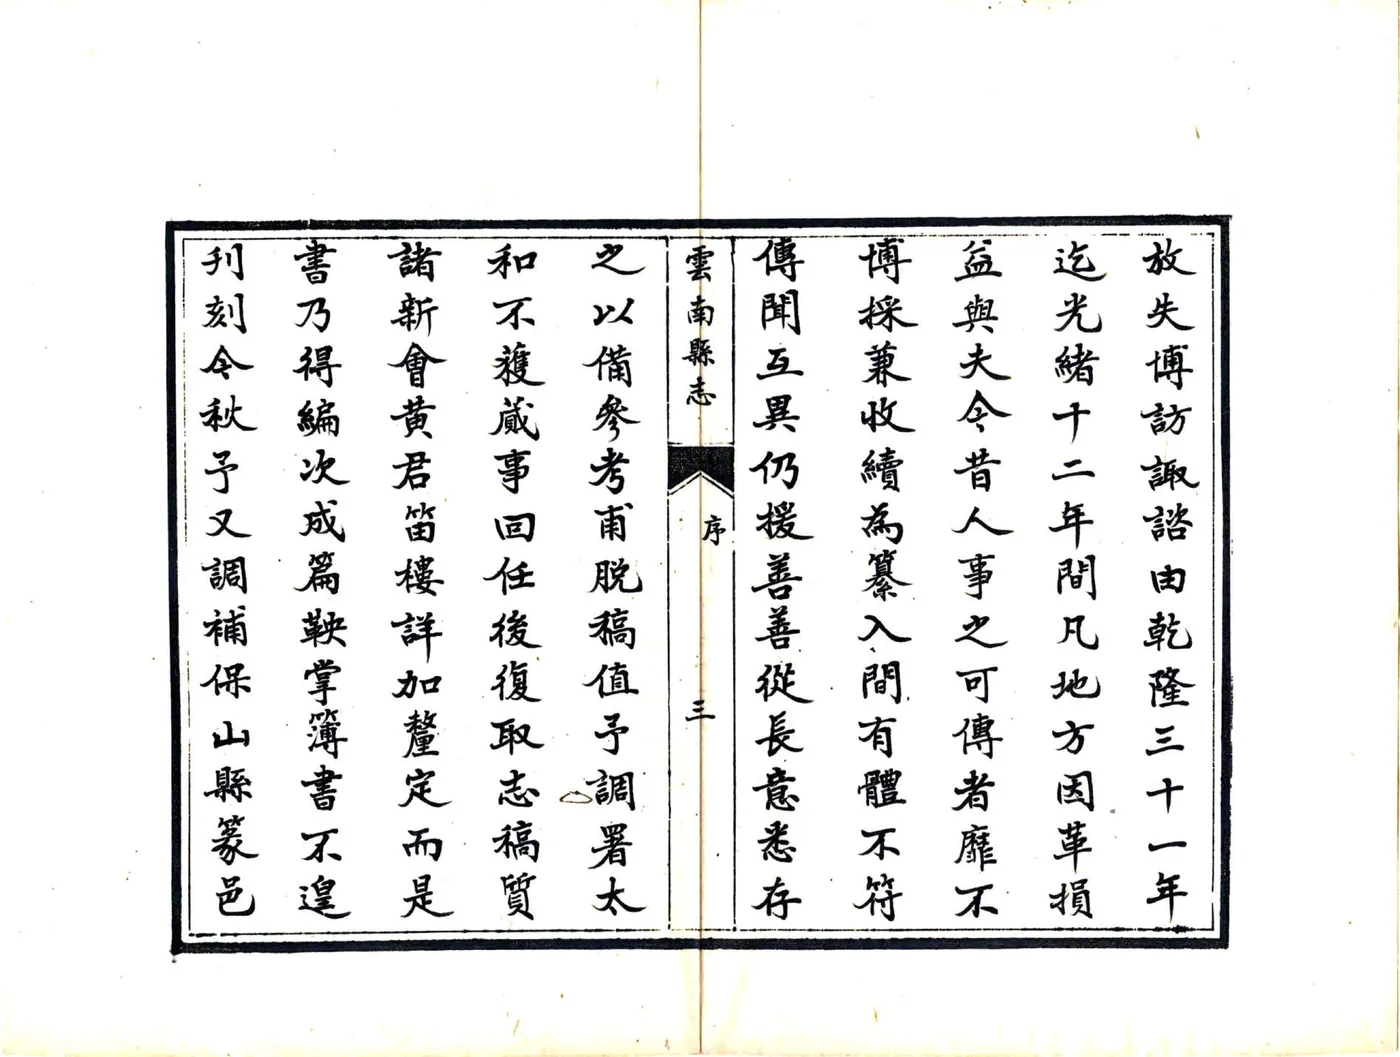 放失博訪諏諮由乾隆三十一年
迄光緒十二年間凡地方因革損
益與夫今昔人事之可傳者靡不
博採兼收續為纂入間有體不符
傳聞互異仍援善善從長意悉存
雲南縣志
序
三
之以備參考甫脱稿值予調署太
和不獲蕆事回任後復取志稿質
諸新會黄君笛樓詳加釐定而是
書乃得編次成篇鞅掌簿書不遑
刋刻今秋予又調補保山縣篆邑